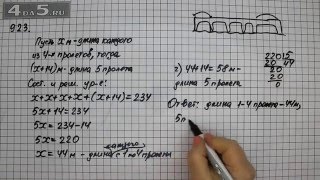 adsx.ru
923.
Пусть x м - длина каждого
из 4-х пролетов, тогда
(x+14) м - длина 5 пролета
Сост. и реш. ур-е:
x+x+x+x+(x+14)=234
5x+14=234
5x=234-14
5x=220
каждого
x=44 м - длина с 1 по 4 пролета
2) 44+14=58 м -
длина 5 пролета
220 5
20 44
20
20
0
Ответ: длина 1-4 пролета-44м,
5 п